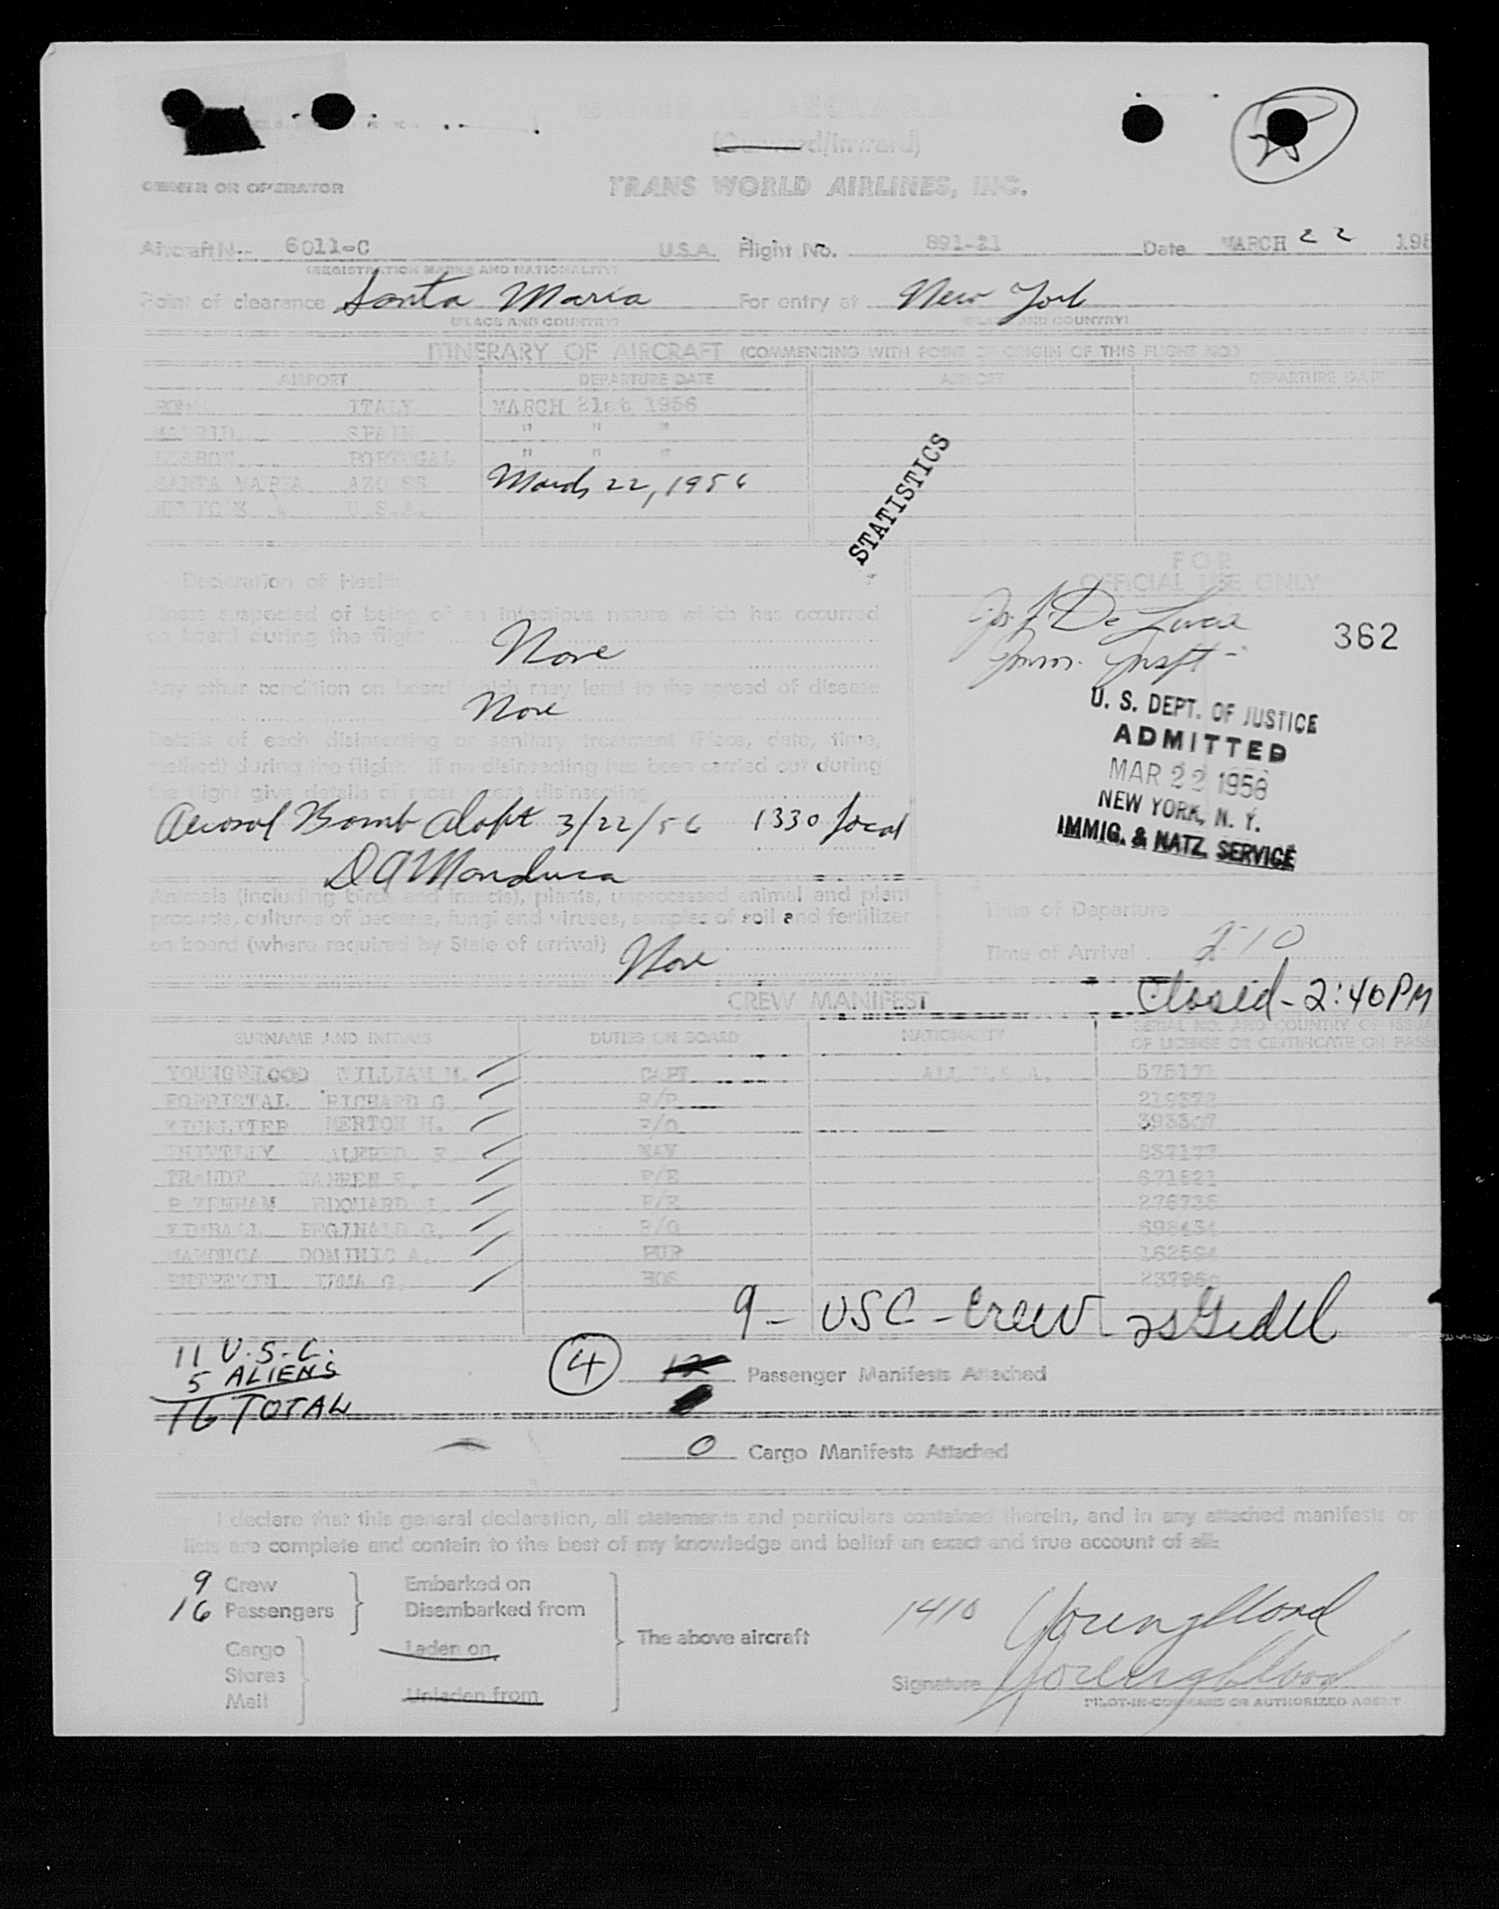 (Outward/Inward)
OWNER OR OPERATOR TRANS WORLD AIRLINES, INC.
Aircraft No. 6011-C U.S.A. Flight No. 891-21 Date MARCH 22 195
(REGISTRATION MARKS AND NATIONALITY)
Point of clearance Santa Maria For entry at New York
(PLACE AND COUNTRY) (PLACE AND COUNTRY)
ITINERARY OF AIRCRAFT (COMMENCING WITH POINT OF ORIGIN OF THIS FLIGHT NO.)
AIRPORT DEPARTURE DATE AIRPORT DEPARTURE DATE
ROME ITALY MARCH 21st 1956
MADRID SPAIN " " "
LISBON PORTUGAL " " "
SANTA MARIA AZORES March 22, 1956
U.S.A.
STATISTICS
Declaration of Health
FOR
OFFICIAL USE ONLY
Illness suspected of being of an infectious nature which has occurred
on board during the flight
None
De Luca
Imm. Inspt -
362
Any other condition on board which may lead to the spread of disease
None
U. S. DEPT. OF JUSTICE
ADMITTED
MAR 22 1956
NEW YORK, N. Y.
IMMIG. & NATZ. SERVICE
Details of each disinsecting or sanitary treatment (Place, date, time,
method) during the flight. If no disinsecting has been carried out during
the flight give details of most recent disinsecting
Aerosol Bomb aloft 3/22/56 1330 local
D A Manduca
Animals (including birds and insects), plants, unprocessed animal and plant
products, cultures of bacteria, fungi and viruses, samples of soil and fertilizer
on board (where required by State of arrival) None
Time of Departure
Time of Arrival 210
Closed - 2:40 PM
CREW MANIFEST
SURNAME AND INITIALS DUTIES ON BOARD NATIONALITY SERIAL NO. AND COUNTRY OF ISSUE
OF LICENSE OR CERTIFICATE OR PASS
YOUNGBLOOD WILLIAM M. CAPT ALL U.S.A. 575177
RICHARD G
KICKLITER MERTON H. F/O 393307
ALFRED F. NAV 857177
WARREN F. F/E 671521
EDOUARD J. F/E 276736
KIMBALL REGINALD G. 698434
MANDUCA DOMINIC A. PUR 162594
IRMA G. HOS
9 - USC - Crew
11 U.S.C.
5 ALIENS
16 TOTAL
4 12 Passenger Manifests Attached
0 Cargo Manifests Attached
I declare that this general declaration, all statements and particulars contained therein, and in any attached manifests or
lists are complete and contain to the best of my knowledge and belief an exact and true account of all:
9 Crew
16 Passengers
Embarked on
Disembarked from
Cargo
Stores
Mail
Laden on
Unladen from
The above aircraft
1410 Youngblood
Signature Youngblood
PILOT-IN-COMMAND OR AUTHORIZED AGENT